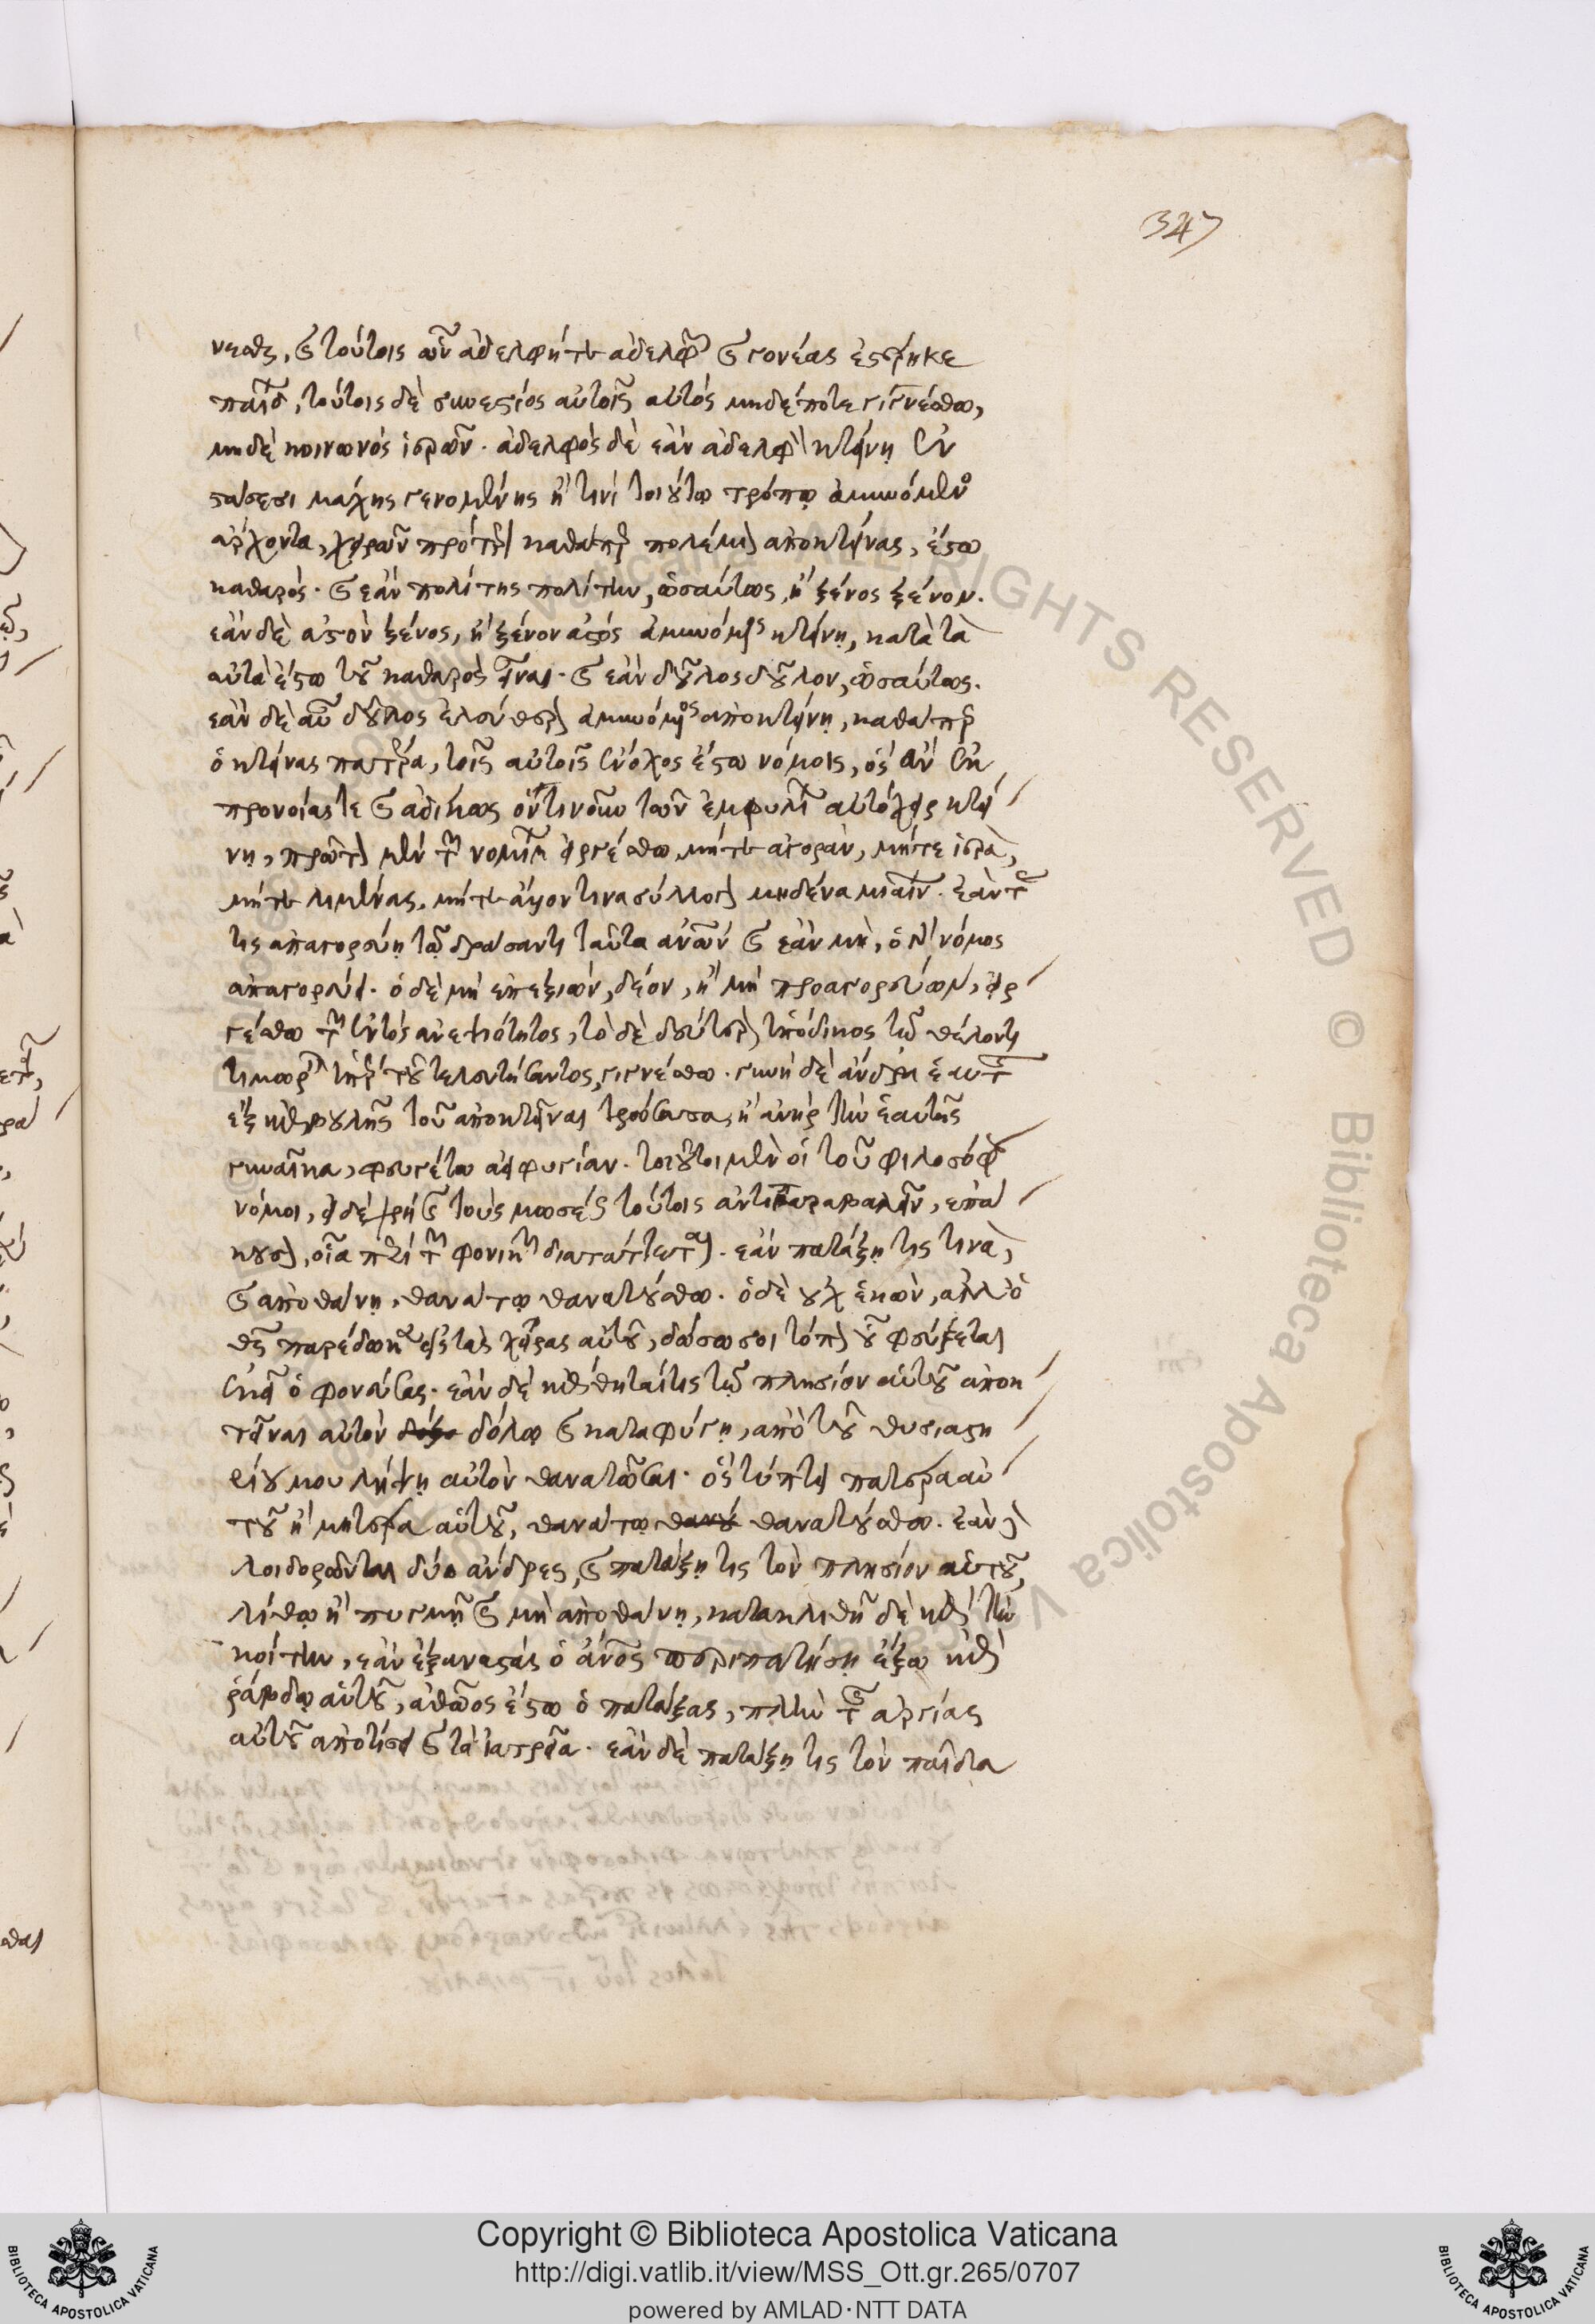 347
νεαθς, καὶ τούτοις ὧν ἀδελφήν τε ἀδελφὸν καὶ γονέας ἐστέρηκε
παίδων, τούτοις δὲ συνέστιος αὐτοῖς αὐτὸς μηδέποτε γιγνέσθω,
μηδὲ κοινωνὸς ἱερῶν. ἀδελφὸς δὲ ἐὰν ἀδελφὸν κτείνῃ ἐν
στάσεσι μάχης γενομένης ἤ τινι τοιούτῳ τρόπῳ ἀμυνόμενος
ἄρχοντα χειρῶν πρότερον καθάπερ πολέμιον ἀποκτείνας, ἔστω
καθαρός. καὶ ἐὰν πολίτης πολίτην, ὡσαύτως, ἢ ξένος ξένον.
ἐὰν δὲ ἀστὸν ξένος, ἢ ξένον ἀστὸς ἀμυνόμενος κτείνῃ, κατὰ τὰ
αὐτὰ ἔστω τοῦ καθαρὸς εἶναι. καὶ ἐὰν δοῦλος δοῦλον, ὡσαύτως.
ἐὰν δὲ αὖ δοῦλος ἐλεύθερον ἀμυνόμενος ἀποκτείνῃ, καθάπερ
ὁ κτείνας πατέρα, τοῖς αὐτοῖς ἔνοχος ἔστω νόμοις, ὃς ἂν ἐκ
προνοίας τε καὶ ἀδίκως ὅντινοῦν τῶν ἐμφυλίων αὐτόχειρ κτεί
νῃ, πρῶτον μὲν τῶν νομίμων εἰργέσθω, μήτε ἀγορὰν, μήτε ἱερὰ,
μήτε λιμένας, μήτε ἄλλον τινὰ σύλλογον μηδένα μιαίνων. ἐάν τε
τις ἀπαγορεύῃ τῷ δράσαντι ταῦτα ἀνθρώπων καὶ ἐὰν μὴ, ὁ γὰρ νόμος
ἀπαγορεύει. ὁ δὲ μὴ ἐπεξιὼν, δέον, ἢ μὴ προαγορεύων, εἰρ
γέσθω τῶν ἐντὸς ἀνεψιότητος, τὸ δὲ δεύτερον ὑπόδικος τῷ θέλοντι
τιμωρεῖν ὑπὲρ τοῦ τελευτήσαντος, γιγνέσθω. γυνὴ δὲ ἄνδρα ἑαυτῆς
ἐξ ἐπιβουλῆς τοῦ ἀποκτεῖναι τρώσασα, ἢ ἀνὴρ τὴν ἑαυτῆς
γυναῖκα, φευγέτω ἀειφυγίαν. τοιοῦτοι μὲν οἱ τοῦ φιλοσόφου
νόμοι, εἰ δὲ χρὴ καὶ τοὺς μωσέως τούτοις ἀντιπαραβαλεῖν, ἐπά
κουσον, οἷα περὶ τῶν φονικῶν διατάττεται. ἐὰν πατάξῃ τις τινὰ,
καὶ ἀποθάνῃ, θανάτῳ θανατούσθω. ὁ δὲ οὐχ ἑκὼν, ἀλλ' ὁ
θς παρέδωκεν εἰς τὰς χεῖρας αὐτοῦ, δώσω σοι τόπον οὗ φεύξεται
ἐκεῖ ὁ φονεύσας. ἐὰν δὲ ἐπιθῆταί τις τῷ πλησίον αὐτοῦ ἀποκ
τεῖναι αὐτὸν δόλῳ καὶ καταφύγῃ, ἀπὸ τοῦ θυσιαστη
ρίου μου λήψῃ αὐτὸν θανατῶσαι. ὃς τύπτει πατέρα αὐ
τοῦ ἢ μητέρα αὐτοῦ, θανάτῳ θανατούσθω. ἐὰν δὲ
λοιδορῶνται δύο ἄνδρες, καὶ πατάξῃ τις τὸν πλησίον αὐτοῦ,
λίθῳ ἢ πυγμῇ καὶ μὴ ἀποθάνῃ, κατακλιθῇ δὲ ἐπὶ τὴν
κοίτην, ἐὰν ἐξαναστὰς ὁ ἄνος περιπατήσῃ ἔξω ἐπὶ
ῥάβδῳ αὐτοῦ, ἀθῷος ἔστω ὁ πατάξας, πλὴν τῆς ἀργίας
αὐτοῦ ἀποτίσει καὶ τὰ ἰατρεῖα. ἐὰν δὲ πατάξῃ τις τὸν παῖδα
Copyright © Biblioteca Apostolica Vaticana
http://digi.vatlib.it/view/MSS_Ott.gr.265/0707
powered by AMLAD·NTT DATA